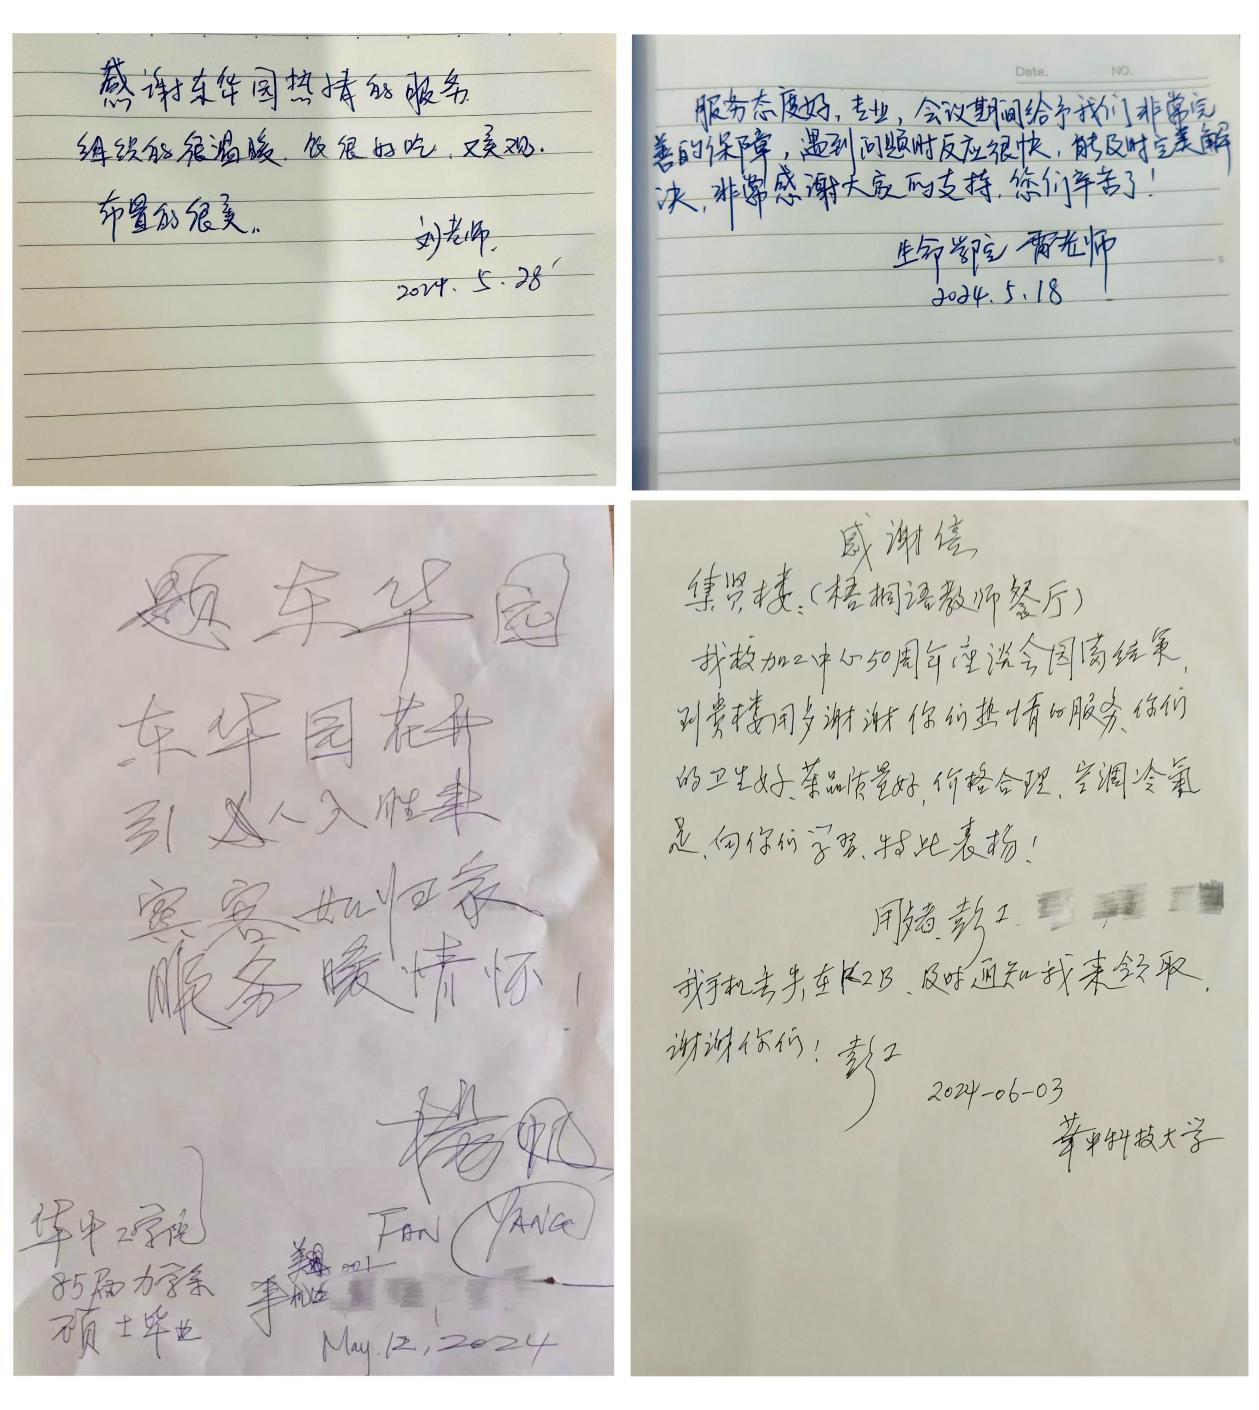 感谢东华园热情的服务
组织的很温暖、饭很好吃、又美观.
布置的很美。
刘老师.
2024.5.28
Date. NO.
服务态度好,专业,会议期间给予我们非常完
善的保障,遇到问题时反应很快,能及时完美解
决,非常感谢大家的支持,您们辛苦了!
生命学院 雷老师
2024.5.18
5
10
题东华园
东华园花开
引人入胜来
宾客如归家
服务暖情怀!
杨帆
FAN YANG
华中工学院
85届力学系
硕士毕业
美国 001
手机
May.12,2024
感谢信
集贤楼:(梧桐语教师餐厅)
我校加工中心50周年座谈会圆满结束,
到贵楼用歺谢谢你们热情的服务、你们
的卫生好、菜品质量好,价格合理、空调冷氣
足、向你们学习、特此表扬!
用歺者、彭工.
我手机丢失在K2B、及时通知我来领取,
谢谢你们! 彭工
2024-06-03
華中科技大学